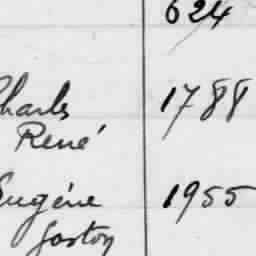 624
Charles 1788
René
Eugène 1955
Gaston